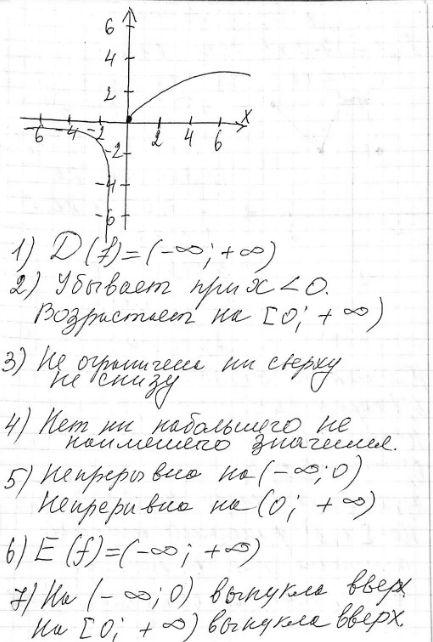 6
4
2
x
-6 -4 -2
2 4 6
-2
-4
-6
1) D(f)=(-∞; +∞)
2) Убывает при x<0.
Возрастает на [0; +∞)
3) Не ограничена ни сверху
не снизу
4) Нет ни набольшего не
наимешего значения.
5) Непрерывна на (-∞; 0)
Непреривна на (0; +∞)
6) E(f)=(-∞; +∞)
7) На (-∞; 0) выпукла вверх
На [0; +∞) выпукла вверх